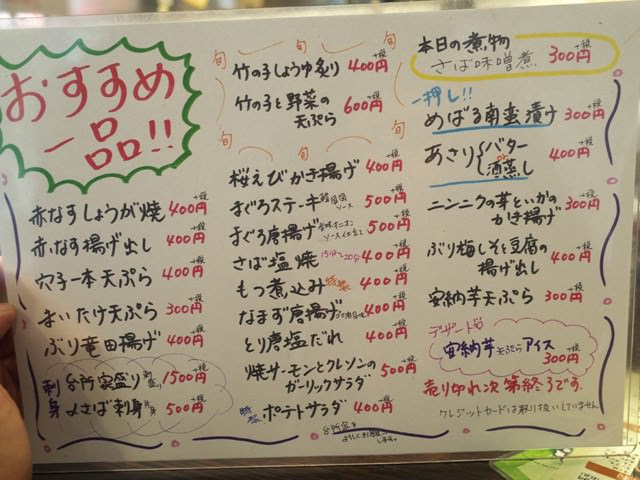 おすすめ
一品!!
赤なすしょうが焼 400円+税
赤なす揚げ出し 400円+税
穴子一本天ぷら 400円+税
まいたけ天ぷら 300円+税
ぶり竜田揚げ 400円+税
刺身
台所家盛り 1500円+税
〆さば刺身 500円+税
旬 旬
竹の子しょうゆ炙り 400円+税
竹の子と野菜の
天ぷら 600円+税
旬 旬
桜えびかき揚げ 400円+税
まぐろステーキ ソース 500円+税
まぐろ唐揚げ 500円+税
さば塩焼 15分〜20分 400円+税
もつ煮込み 特製 400円+税
なまず唐揚げ 400円+税
とり唐塩だれ 400円+税
焼サーモンとクレソンの
ガーリックサラダ 500円+税
特製 ポテトサラダ 400円+税
台所家を
よろしくお願い
します。
本日の煮物
さば味噌煮 300円+税
一押し!!
めばる南蛮漬け 300円+税
あさり バター
or
酒蒸し 400円+税
ニンニクの芽といかの
かき揚げ 300円+税
ぶり梅しそと豆腐の
揚げ出し 400円+税
安納芋天ぷら 300円+税
デザート
安納芋天ぷらアイス
300円+税
売り切れ次第終了です。
クレジットカードは取り扱いしていません